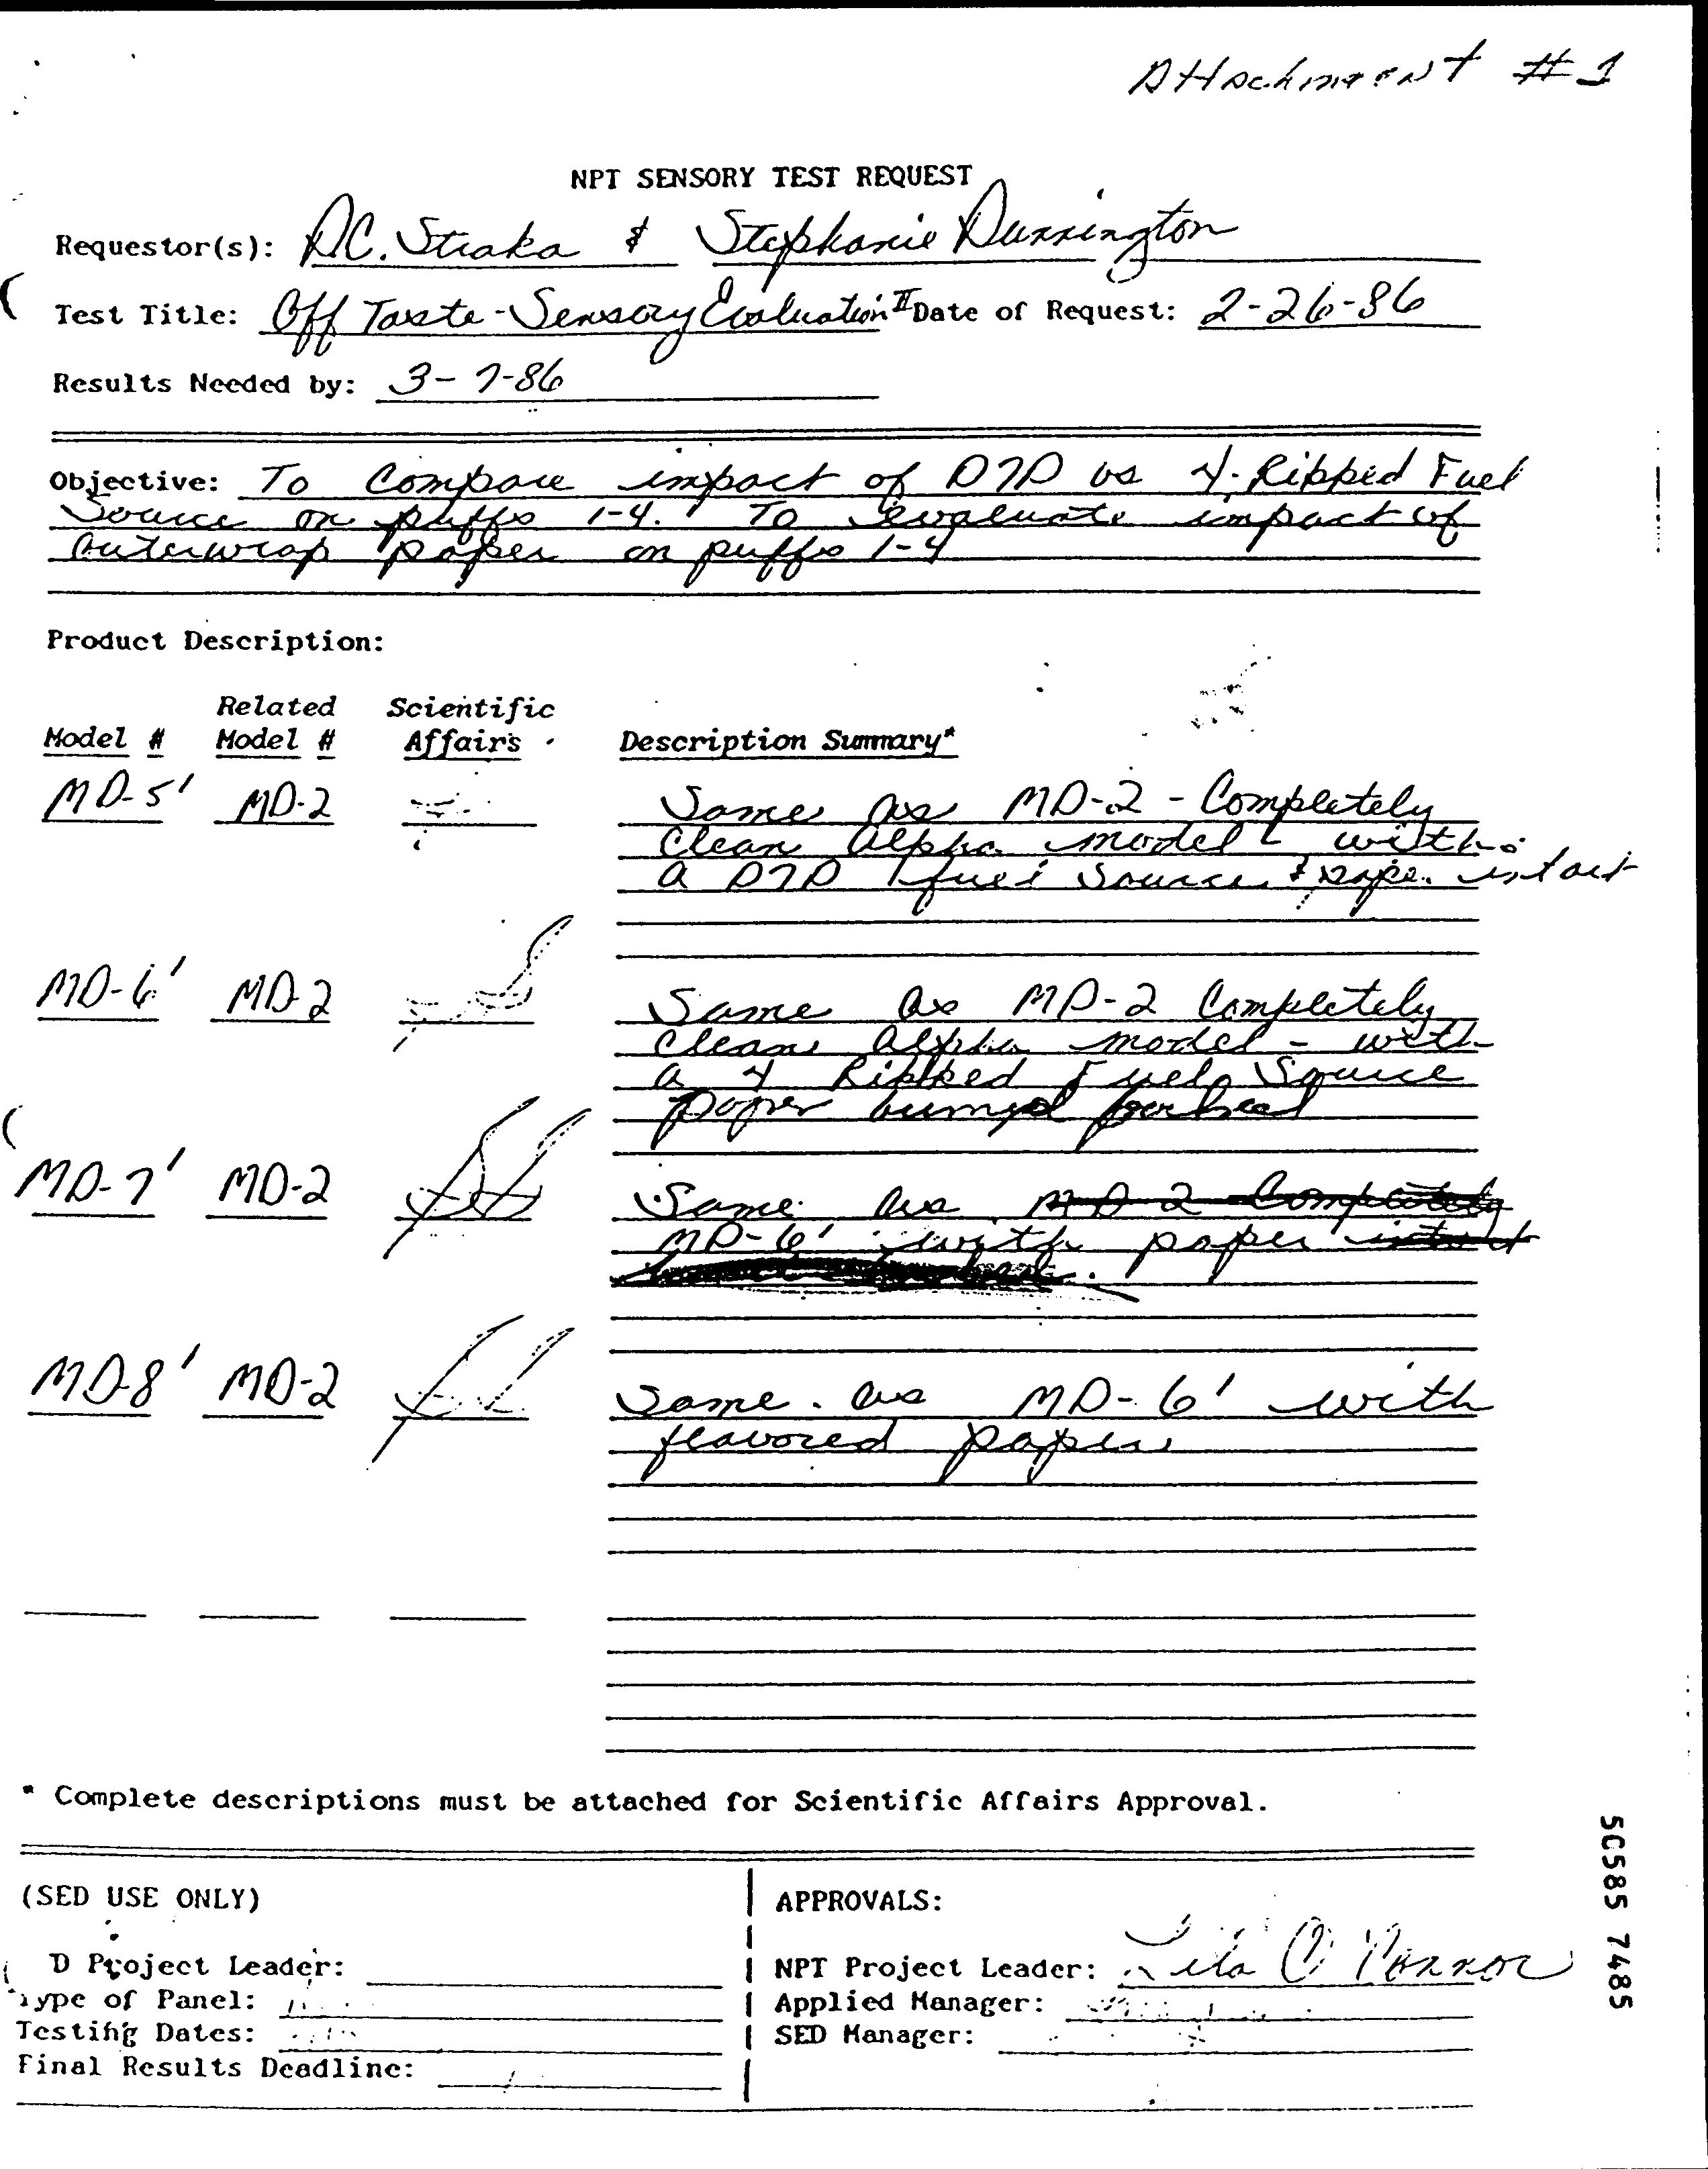 Attachment #1
NPT SENSORY TEST REQUEST
Requestor(s): DC. Straka & Stephanie Durrington
Test Title: Off Taste-Sensory Evaluation II Date of Request: 2-26-86
Results Needed by: 3-7-86
Objective: To Compare impact of D7D vs 4-Ripped Fuel
Source on puffs 1-4. To evaluate impact of
Outerwrap paper on puffs 1-4
Product Description:
Related Scientific
Model # Model # Affairs Description Summary*
MD-5' MD-2 Same as MD-2 - Completely
Clean Alpha model - with
a D7D fuel Source & paper intact
MD-6' MD-2 Same as MD-2 Completely
Clean Alpha model - with
a 4 Ripped Fuel Source
paper
MD-7' MD-2 Same as MD-2 Completely
MD-6' with paper intact
MD-8' MD-2 Same as MD-6' with
flavored paper
* Complete descriptions must be attached for Scientific Affairs Approval.
(SED USE ONLY) APPROVALS:
D Project Leader: NPT Project Leader: O'Connor
Type of Panel: Applied Manager:
Testing Dates: SED Manager:
Final Results Deadline:
50585 7485